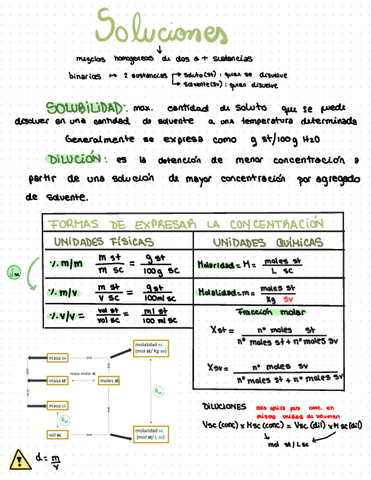 Soluciones
mezclas homogeneas de dos o + sustancias
binarios → 2 sustancias → soluto (st) : quien se disuelve
→ solvente (sv) : quien disuelve
SOLUBILIDAD: max. cantidad de soluto que se puede
disolver en una cantidad de solvente a una temperatura determinada
Generalmente se expresa como g st/100g H2O
DILUCIÓN: es la obtención de menor concentración a
partir de una solución de mayor concentración por agregado
de solvente.
FORMAS DE EXPRESAR LA CONCENTRACIÓN
UNIDADES FÍSICAS
UNIDADES QUÍMICAS
% m/m m st / m sc = g st / 100g sc
Molaridad = M = moles st / L sc
% m/v m st / v sc = g st / 100ml sc
Molalidad = m = moles st / Kg sv
% v/v = vol st / vol sc = ml st / 100 ml sc
Fracción molar
Xst = nº moles st / nº moles st + nº moles sv
Xsv = nº moles sv / nº moles st + nº moles sv
dsc
masa sv
molalidad sc
(mol st/ Kg sv)
masa molar st
masa st
moles st
masa sc
dsc
vol sc
molaridad sc
(mol st/ L sc)
DILUCIONES
solo aplica para conc. en
misma unidad de volumen
Vsc (conc) x Msc (conc) = Vsc (dil) x Msc (dil)
mol st / L sc
d = m / v